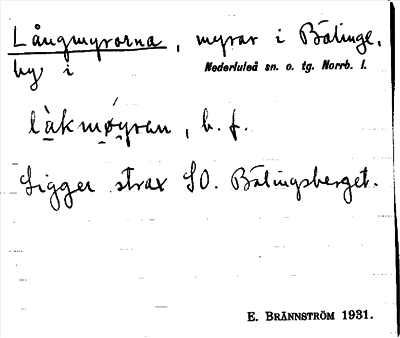 Långmyrorna, myrar i Bälinge,
by i Nederluleå sn. o. tg. Norrb. l.
làkmǿyran, b. f.
Ligger strax SO. Bälingsberget.
E. BRÄNNSTRÖM 1931.